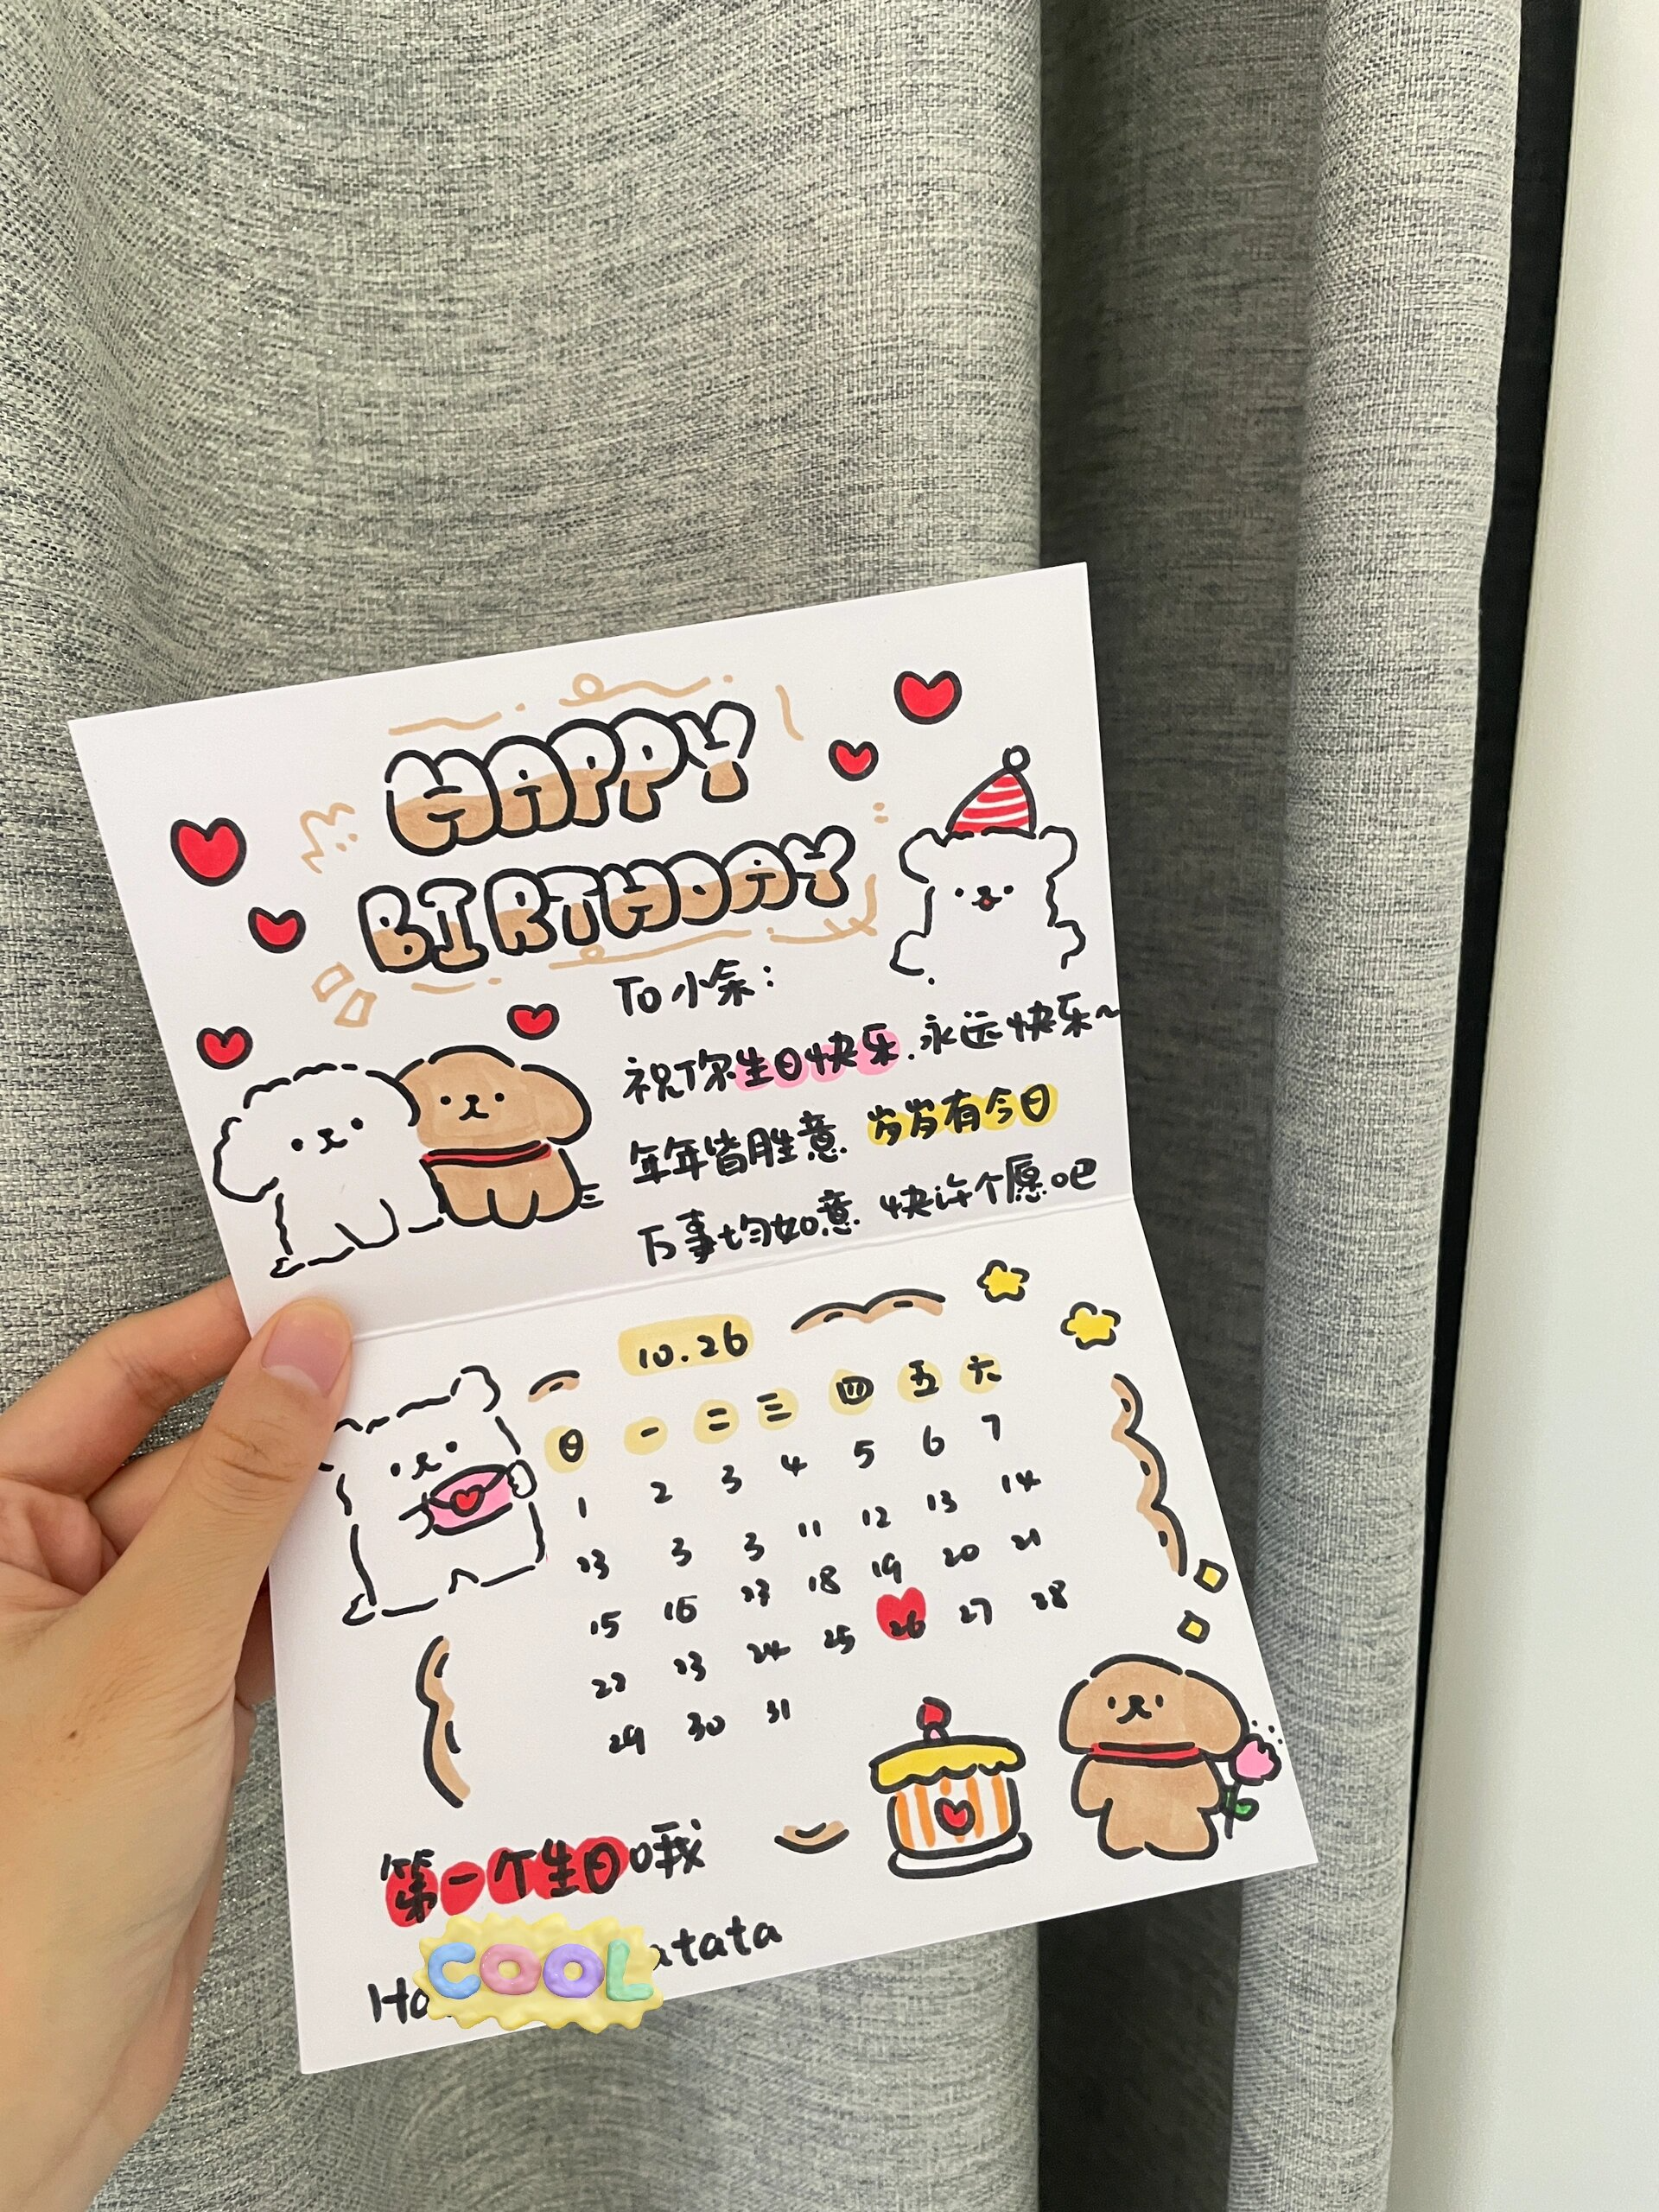 HAPPY
BIRTHDAY
To 小余:
祝你生日快乐.永远快乐~
年年皆胜意 岁岁有今日
万事均如意 快许个愿吧
10.26
日 一 二 三 四 五 六
1 2 3 4 5 6 7
3 3 11 12 13 14
15 16 18 19 20 21
22 23 24 25 26 27 28
29 30 31
第一个生日哦
COOL